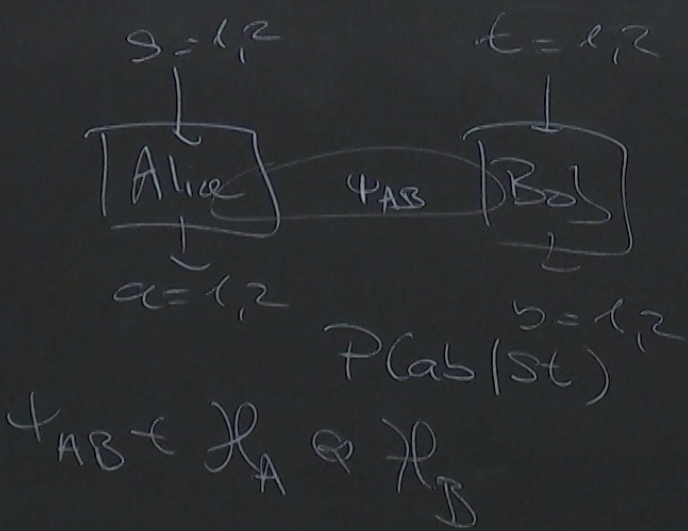 s=1,2 t=1,2
Alice ψ_AB Bob
a=1,2 b=1,2
P(ab|st)
ψ_AB ∈ ℋ_A ⊗ ℋ_B